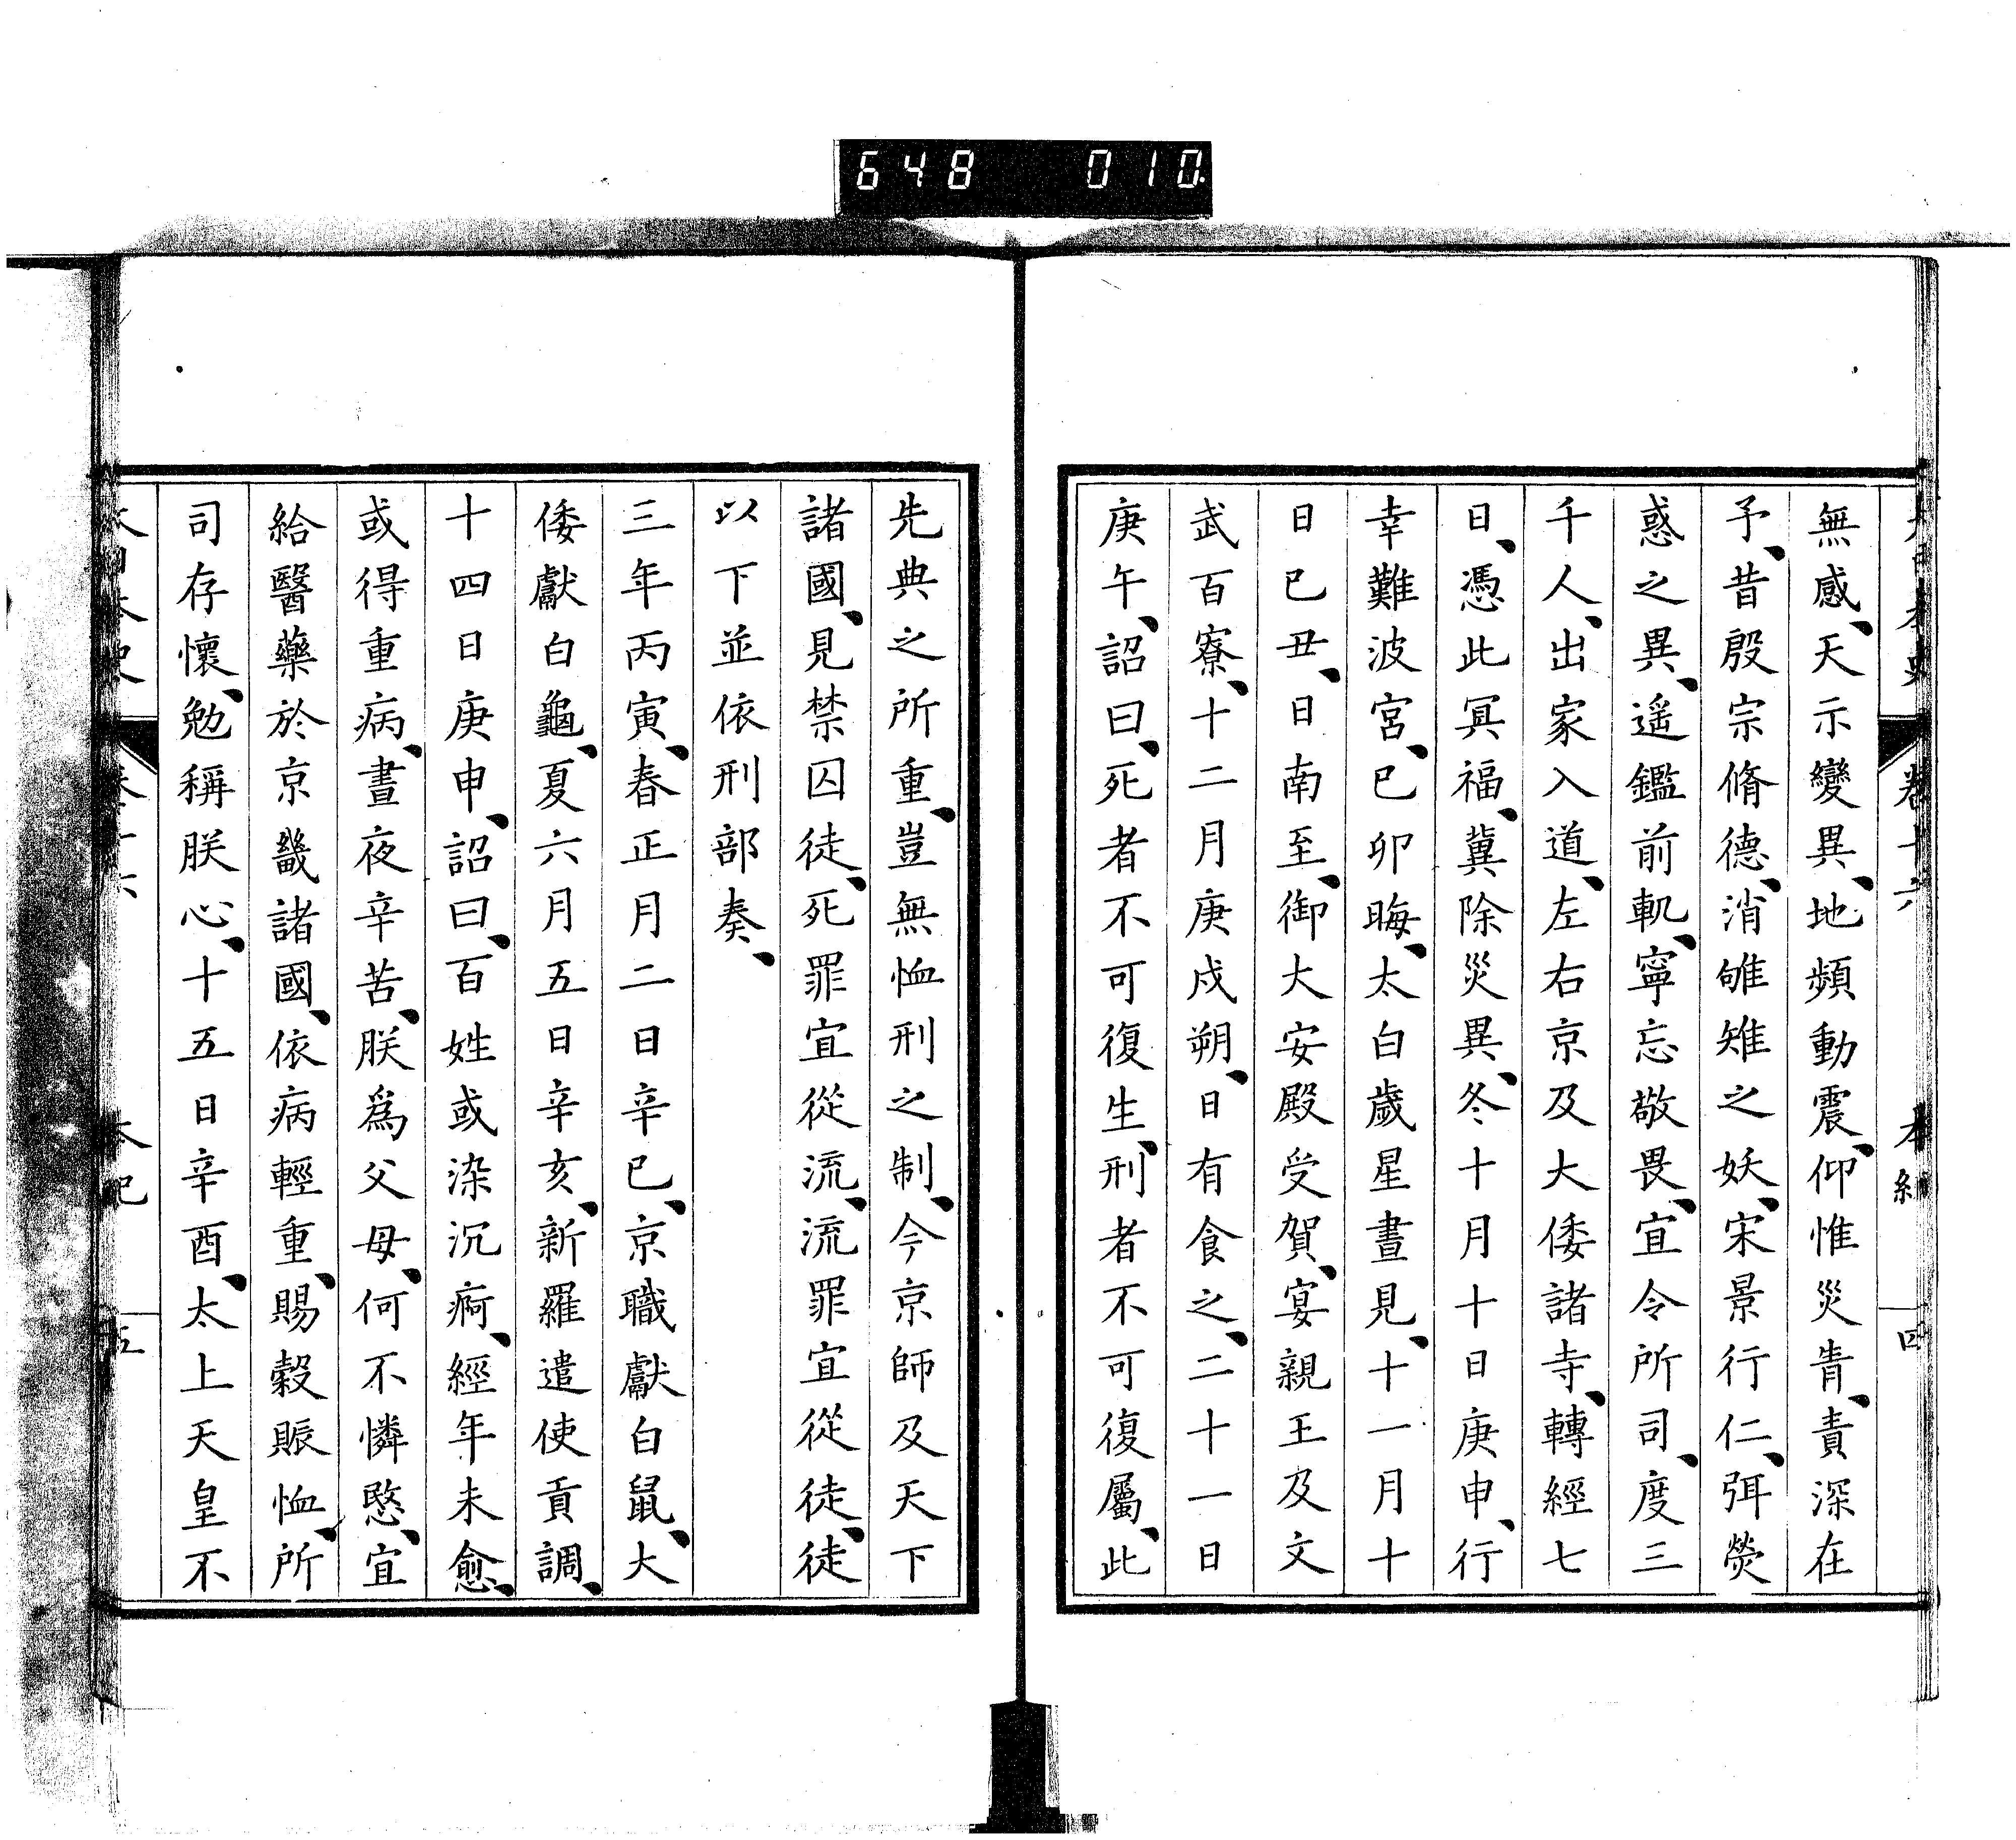 648 010
無感、天示變異、地頻動震、仰惟災眚、責深在
予、昔殷宗脩德、消雊雉之妖、宋景行仁、弭熒
惑之異、遥鑑前軌、寧忘敬畏、宜令所司、度三
千人、出家入道、左右京及大倭諸寺、轉經七
日、憑此冥福、冀除災異、冬十月十日庚申、行
幸難波宮、已卯晦、太白歲星晝見、十一月十
日已丑、日南至、御大安殿受賀、宴親王及文
武百寮、十二月庚戍朔、日有食之、二十一日
庚午、詔曰、死者不可復生、刑者不可復屬、此
先典之所重、豈無恤刑之制、今京師及天下
諸國、見禁囚徒、死罪宜從流、流罪宜從徒、徒
以下並依刑部奏、
三年丙寅、春正月二日辛已、京職獻白鼠、大
倭獻白龜、夏六月五日辛亥、新羅遣使貢調、
十四日庚申、詔曰、百姓或染沉痾、經年未愈、
或得重病、晝夜辛苦、朕爲父母、何不憐愍、宜
給醫藥於京畿諸國、依病輕重、賜穀賑恤、所
司存懷、勉稱朕心、十五日辛酉、太上天皇不